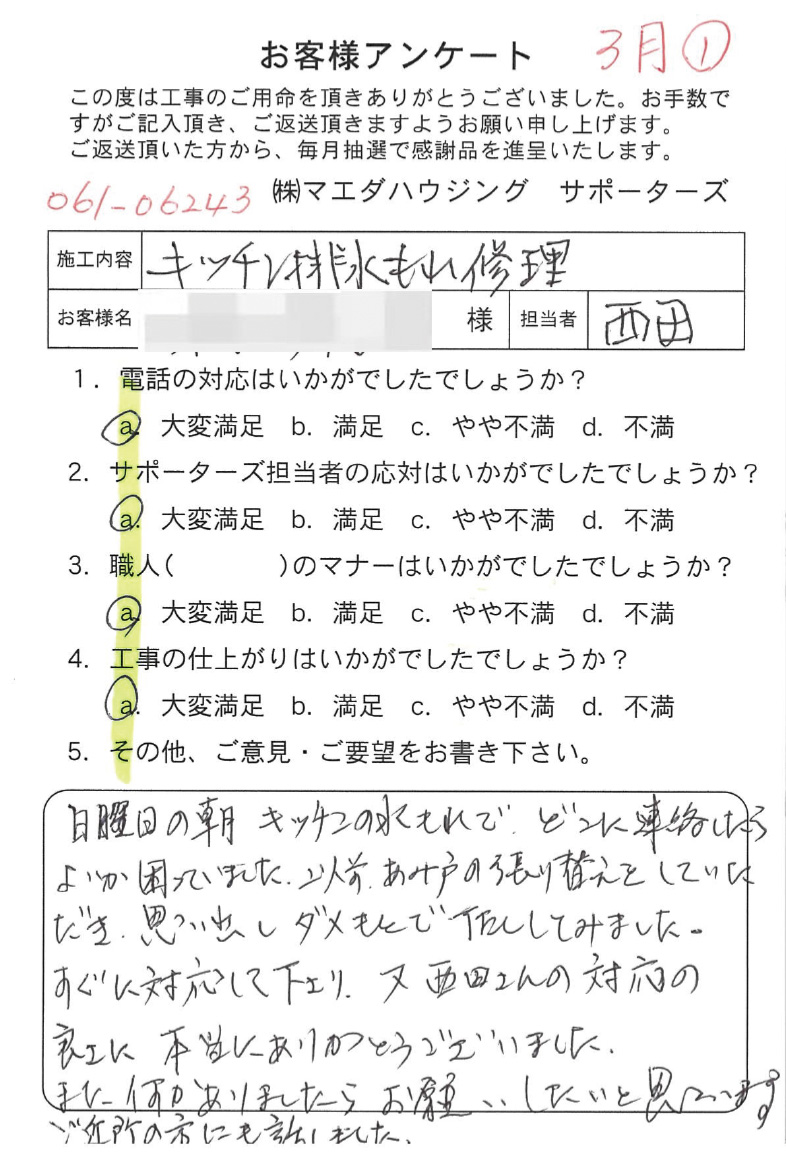 お客様アンケート
3月①
この度は工事のご用命を頂きありがとうございました。お手数で
すがご記入頂き、ご返送頂きますようお願い申し上げます。
ご返送頂いた方から、毎月抽選で感謝品を進呈いたします。
061-06243
㈱マエダハウジング サポーターズ
施工内容 キッチン排水もれ修理
お客様名 様 担当者 西田
1. 電話の対応はいかがでしたでしょうか？
a. 大変満足 b. 満足 c. やや不満 d. 不満
2. サポーターズ担当者の応対はいかがでしたでしょうか？
a. 大変満足 b. 満足 c. やや不満 d. 不満
3. 職人( )のマナーはいかがでしたでしょうか？
a. 大変満足 b. 満足 c. やや不満 d. 不満
4. 工事の仕上がりはいかがでしたでしょうか？
a. 大変満足 b. 満足 c. やや不満 d. 不満
5. その他、ご意見・ご要望をお書き下さい。
日曜日の朝 キッチンの水もれで、どこに連絡したら
よいか困っていました、以前、あみ戸の張り替えをしていた
だき、思い出し ダメもとで TELしてみました。
すぐに対応して下さり、又 西田さんの対応の
良さに 本当にありがとうございました、
また何かありましたらお願いしたいと思います
ご近所の方にも話しました、